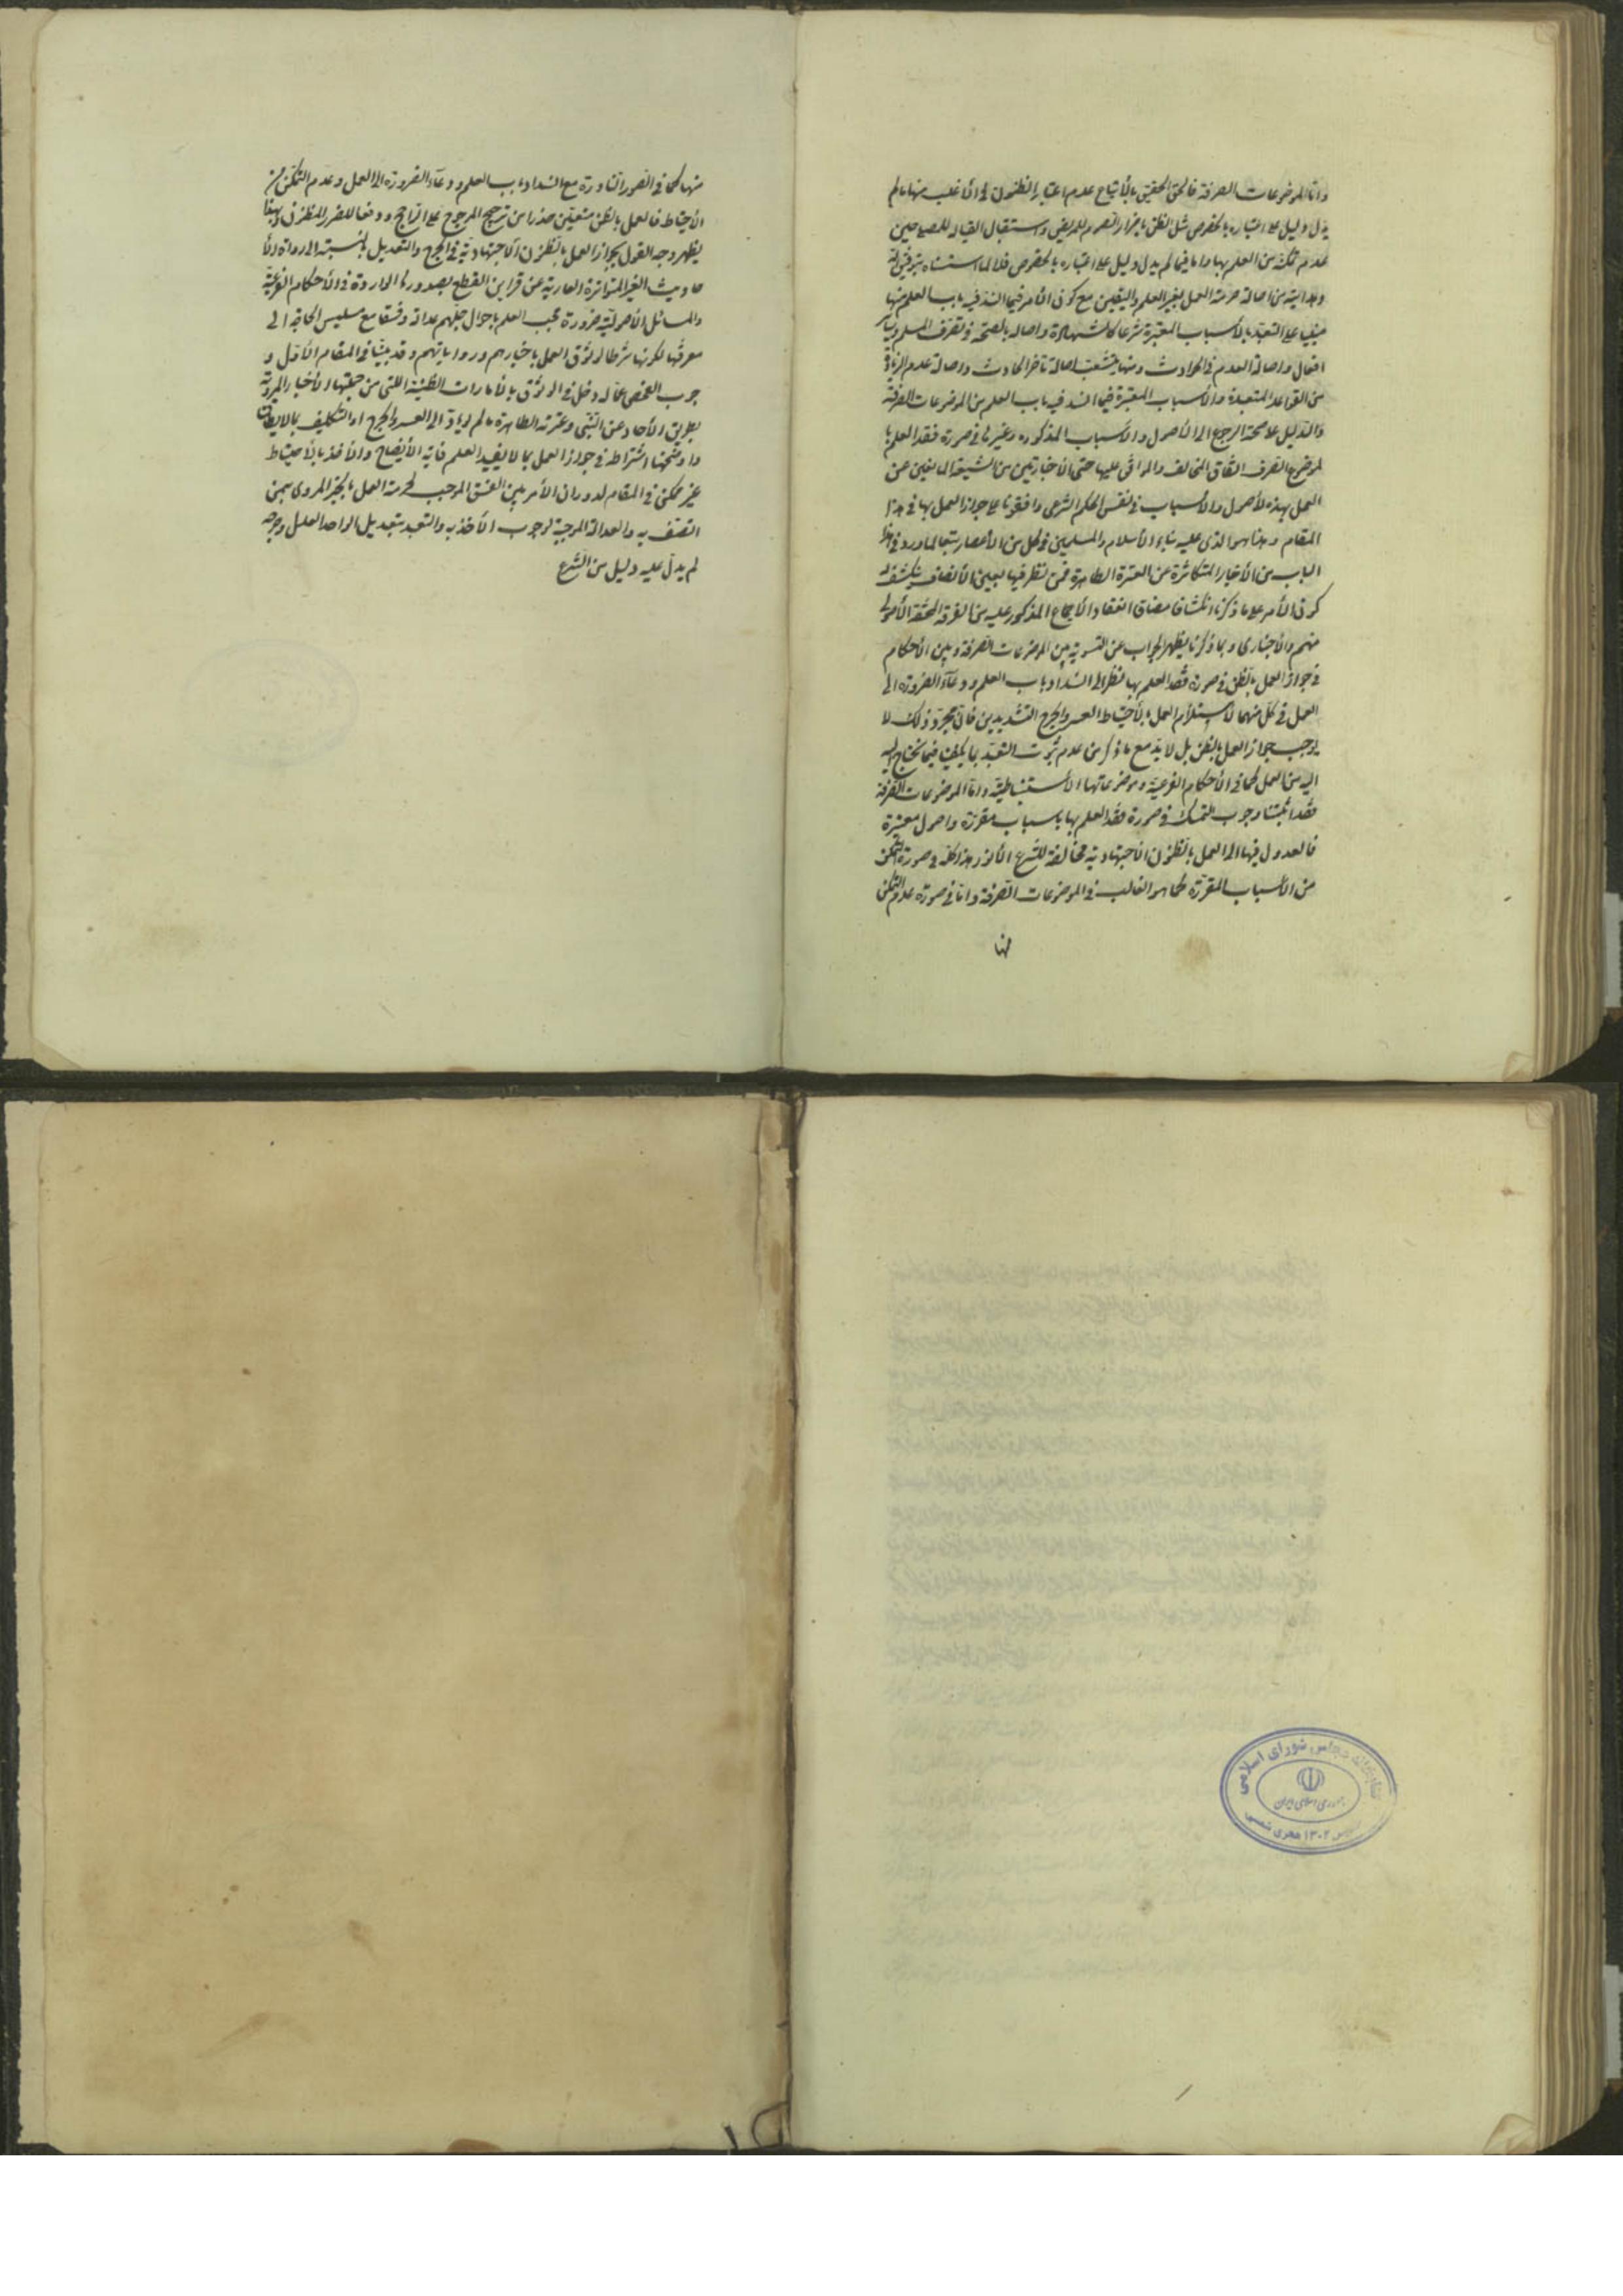 واما الموضوعات الصرفة فالحق الحقيق بالأتباع عدم اعتبار الظنون في الأغلب منها ما لم
يدل دليل على اعتباره بالخصوص مثل الظن باضرار الصوم للمريض واستقبال القبلة للمصلي حين
عدم تمكنه من العلم بها واما فيما لم يدل دليل على اعتباره بالخصوص فلا لما
من اصالة حرمة العمل بغير العلم واليقين مع كون الأمر فيما انسد فيه باب العلم منها
على التعبد بالأسباب المعتبرة شرعا كالشهادة واصالة الصحة في تصرف المسلم
افعاله واصالة العدم في الحوادث ومنها يتشعب اصالة تأخر الحادث واصالة عدم الزيادة
من القواعد المتعبدة والأسباب المعتبرة فيما انسد فيه باب العلم من الموضوعات الصرفة
والدليل على صحة الرجوع الى الأصول والأسباب المذكورة وغيرها في صورة فقد العلم بما
لموضوع الصرف اتفاق المخالف والموافق عليها حتى الأخباريين من الشيعة المانعين عن
العمل بهذه الأصول والأسباب في نفس الحكم الشرعي وافقونا على جواز العمل بها في هذا
المقام وهذا هو الذي عليه بناء الأسلام والمسلمين في كل من الأعصار تبعا لما ورد في هذا
الباب من الأخبار المتكاثرة عن العترة الطاهرة فمن نظر فيها بعين الأنصاف ينكشف له
كون الأمر على ما ذكرنا انكشافا مضافا انعقاد الأجماع المذكور عليه من الفرقة المحقة الأصولي
منهم والأخباري وبما ذكرنا يظهر الجواب عن التسوية بين الموضوعات الصرفة وبين الأحكام
في جواز العمل بالظن في صورة فقد العلم بها نظرا الى انسداد باب العلم ودعاء الضرورة الى
العمل في كل منهما لاستلزام العمل بالأحتياط العسر والحرج الشديدين فان مجرد ذلك لا
يوجب جواز العمل بالظن بل لا بد مع ما ذكر من عدم ثبوت التعبد بما يكفي فيما نحتاج اليه
اليه من العمل كما في الأحكام الفرعية وموضوعاتها الأستنباطية واما الموضوعات الصرفة
فقد اثبتنا وجوب التمسك في صورة فقد العلم بها باسباب مقررة واصول معتبرة
فالعدول فيها الى العمل بالظنون الأجتهادية مخالفة للشرع الأنور هذا كله في صورة التمكن
من الأسباب المقررة كما هو الغالب في الموضوعات الصرفة واما في صورة عدم التمكن
منها
منها كما في الصور النادرة مع انسداد باب العلم ودعاء الضرورة الى العمل وعدم التمكن من
الأحتياط فالعمل بالظن متعين حذرا من ترجيح المرجوح على الراجح ودفعا للضرر المظنون وبهذا
يظهر وجه القول بجواز العمل بالظنون الأجتهادية في الجرح والتعديل بالنسبة الى رواة الأ
حاديث الغير المتواترة العارية عن قراين القطع بصدورها الواردة في الأحكام الفرعية
والمسائل الأصولية ضرورة عجب العلم باحوال جلهم عدالة وفسقا مع مسيس الحاجة الى
معرفتها لكونها شرطا لوثوق العمل باخبارهم ورواياتهم وقد بينا في المقام الأول و
جوب الفحص عما له دخل في الوثوق بالأمارات الظنية اللتي من جملتها الأخبار المروية
بطريق الأحاد عن النبي وعترته الطاهرة ما لم يؤد الى العسر والحرج او التكليف بما لا يطاق
واوضحنا اشتراط في جواز العمل بما لا يفيد العلم غاية الأيضاح والأخذ بالأحتياط
غير ممكن في المقام لدوران الأمر بين الفسق الموجب لحرمة العمل بالخبر المروي بمن
اتصف به والعدالة الموجبة لوجوب الأخذ به والتعبد بتعديل الواحد العدل وجرحه
لم يدل عليه دليل من الشرع
كتابخانه مجلس شورای اسلامی
جمهوری اسلامی ایران
۱۳۰۲ هجری شمسی